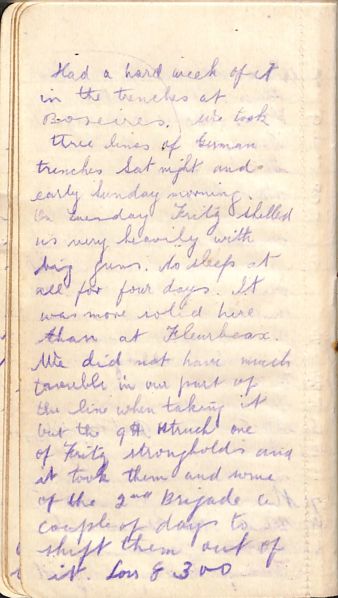 Had a hard week of it
in the trenches at
Boseires. We took
three lines of German
trenches Sat night and
early Sunday morning.
On Tuesday Fritz shelled
us very heavily with
big guns. No sleep at
all for four days. It
was more solid here
than at Fleurbeax.
We did not have much
trouble in our part of
the line when taking it
but the 9th struck one
of Fritz strongholds and
it took them and some
of the 2nd Brigade a
couple of days to
shift them out of
it. Loss 8300